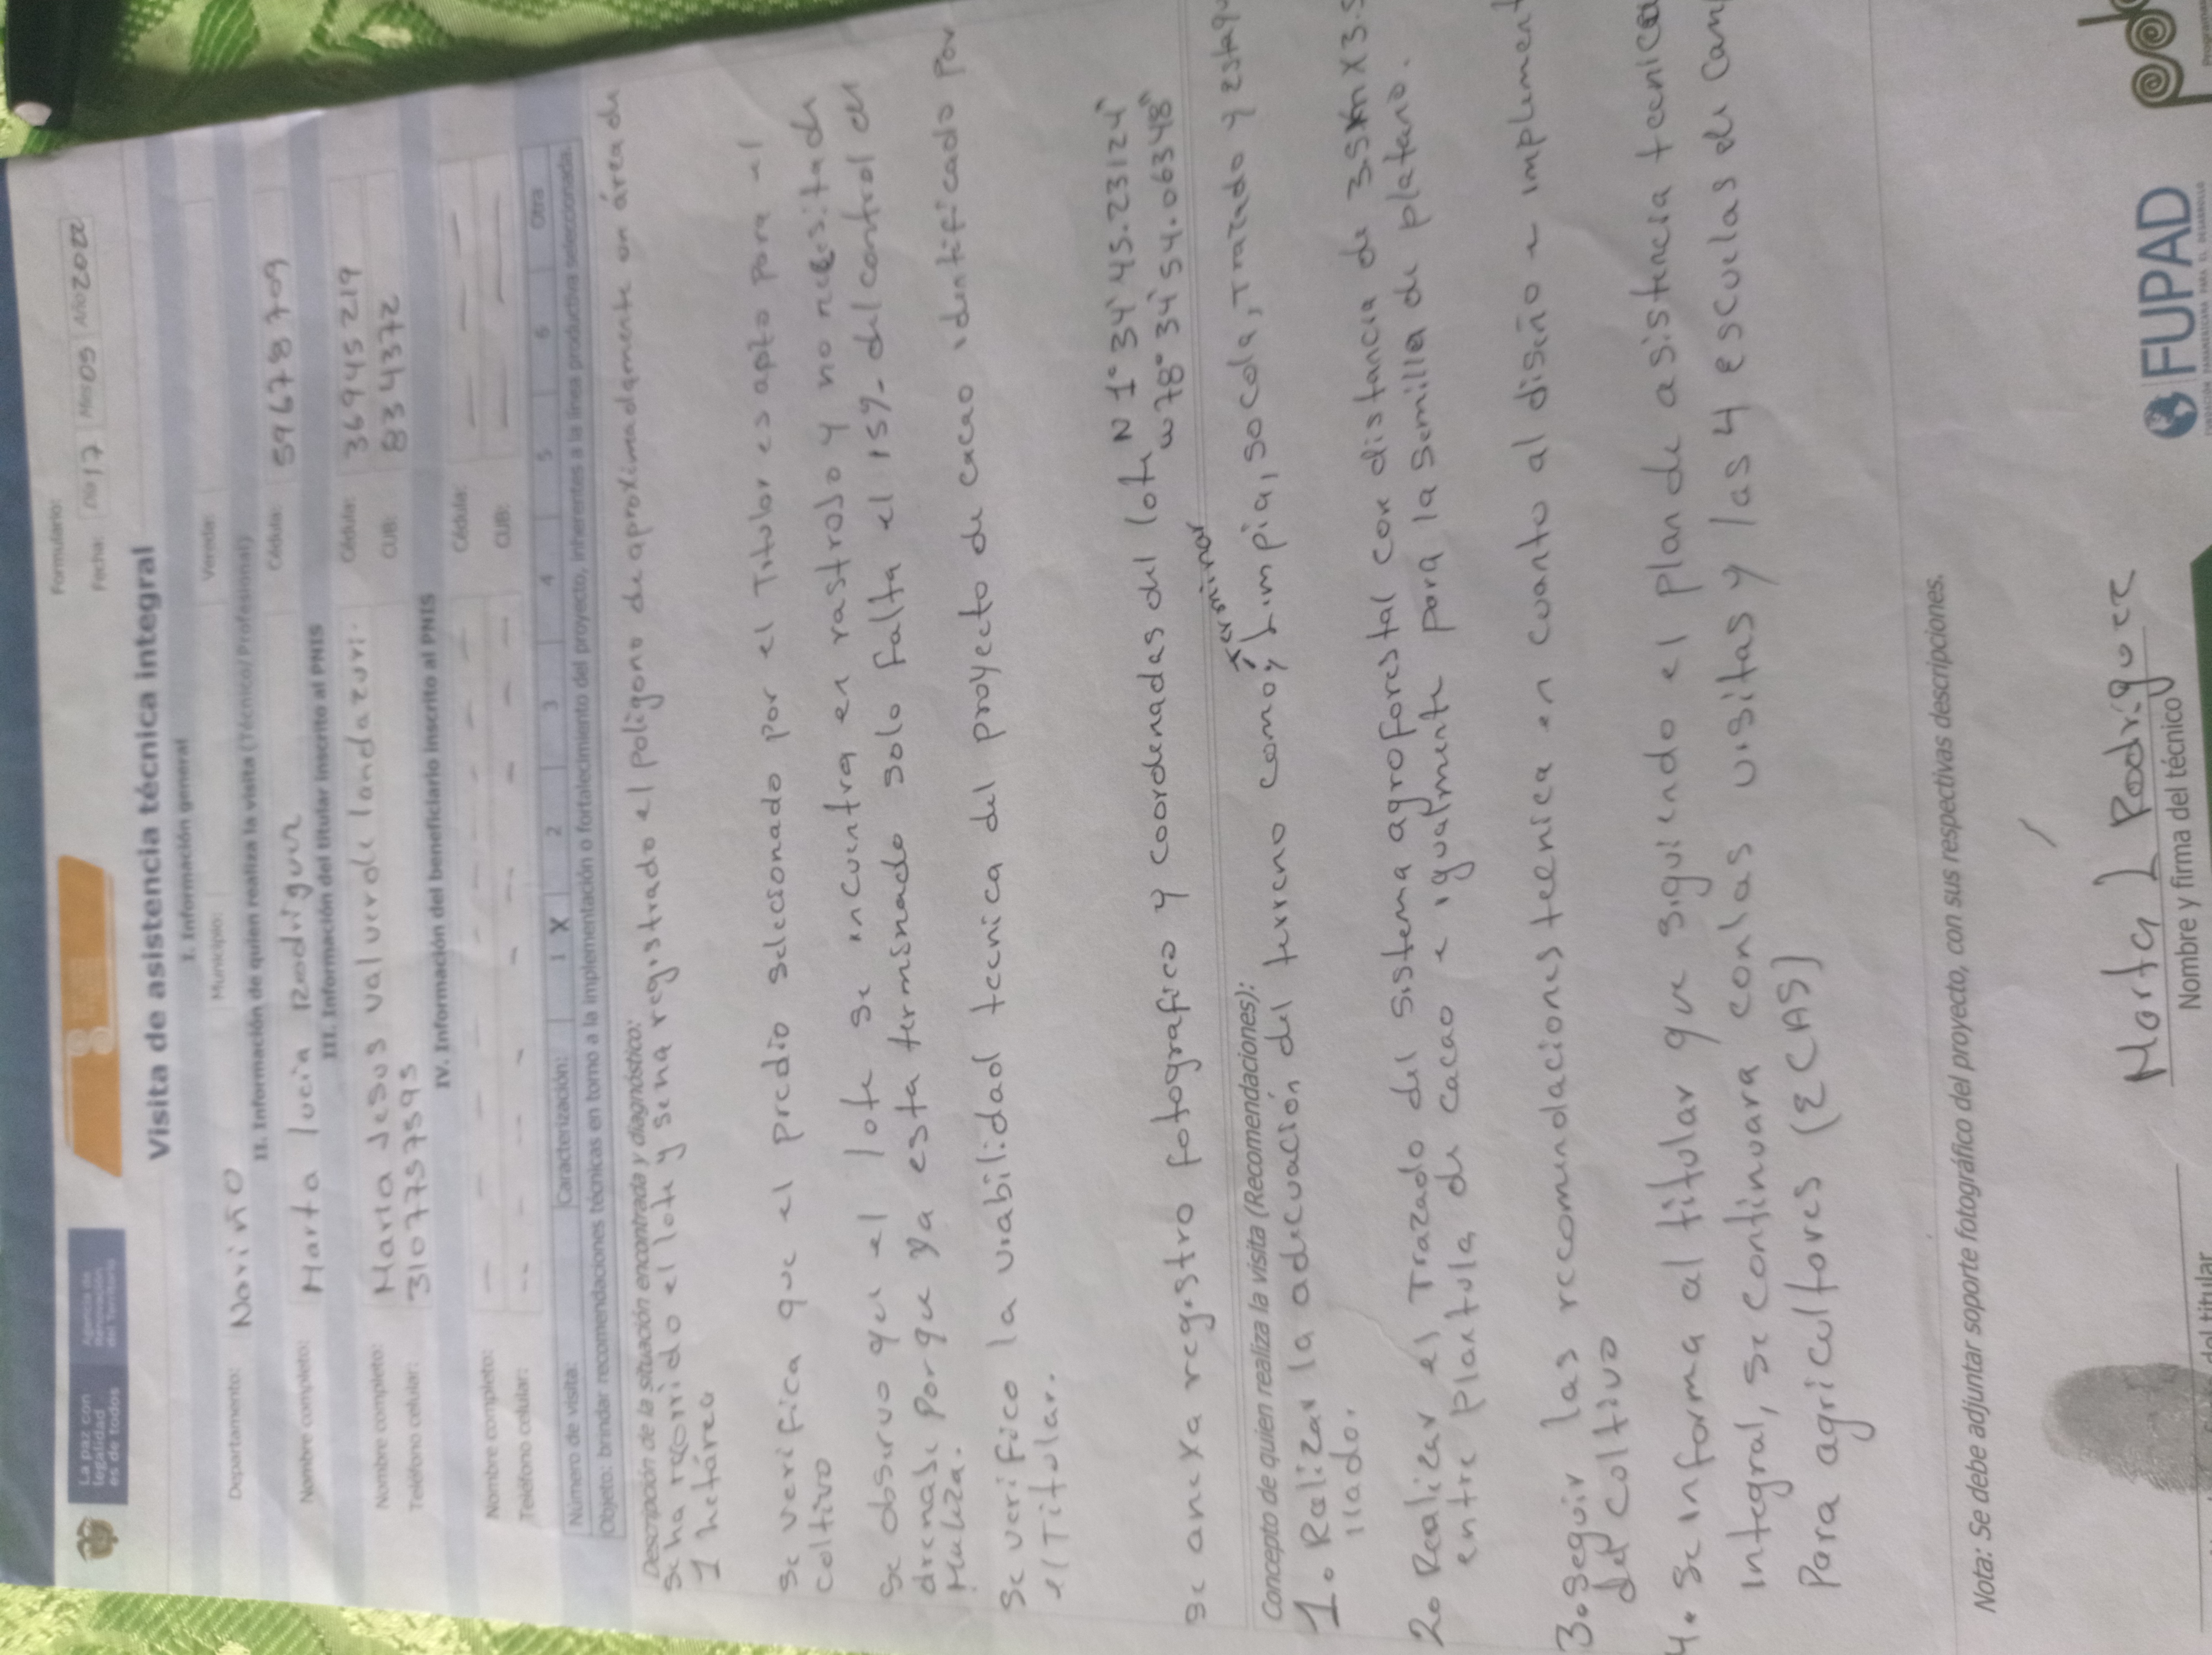 La paz con
legalidad
es de todos
Agencia de
Renovación
del Territorio
Formulario:
Fecha: Día 17 Mes 09 Año 2022
Visita de asistencia técnica integral
I. Información general
Departamento: Nariño Municipio: Vereda:
II. Información de quien realiza la visita (Técnico/Profesional)
Nombre completo: Marta lucia Rodriguez Cédula: 59678709
III. Información del titular inscrito al PNIS
Nombre completo: Maria Jesus valverde landazuri. Cédula: 36945219
Teléfono celular: 3107757595 CUB: 834372
IV. Información del beneficiario inscrito al PNIS
Nombre completo: Cédula:
Teléfono celular: CUB:
Número de visita: Caracterización: 1 X 2 3 4 5 6 Otra
Objeto: brindar recomendaciones técnicas en torno a la implementación o fortalecimiento del proyecto, inherentes a la línea productiva seleccionada.
Descripción de la situación encontrada y diagnóstico:
se ha recorrido el lote y se ha registrado el poligono de aproximadamente un área de
1 hetárea
se verifica que el predio selecionado por el Titular es apto para el
coltivo
se observo que el lote se encuentra en rastrojo y no necesita de
drenaje Porque ya esta terminado solo falta el 15% del control de
Maleza.
se verifico la viabilidad tecnica del proyecto de cacao identificado por
el Titular.
se anexa registro fotografico y coordenadas del lote N 1° 34' 45.23124"
w 78° 34' 54.06348"
Concepto de quien realiza la visita (Recomendaciones):
terminar
1. Realizar la adecuación del terreno como; Limpia, socola, Trazado y estaqui
llado.
2. Realizar el Trazado del sistema agroforestal con distancia de 3.5m x 3.5
entre plantula de cacao e igualmente para la semilla de platano.
3. seguir las recomendaciones tecnica en cuanto al diseño e implement
del coltivo
4. se informa al titular que siguiendo el plan de asistencia tecnica
Integral, se continuara con las visitas y las 4 escuelas de cam
Para agricultores (ECAS)
Nota: Se debe adjuntar soporte fotográfico del proyecto, con sus respectivas descripciones.
Marta L Rodriguez
del titular
Nombre y firma del técnico
FUPAD